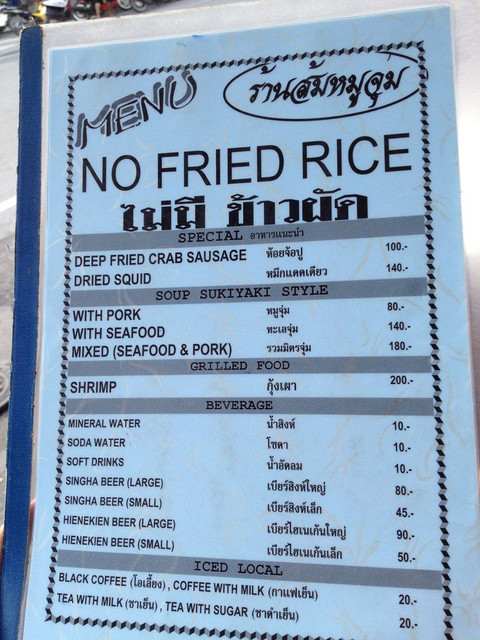 MENU ร้านส้มหมูจุ่ม
NO FRIED RICE
ไม่มี ข้าวผัด
SPECIAL อาหารแนะนำ
DEEP FRIED CRAB SAUSAGE ห้อยจ้อปู 100.-
DRIED SQUID หมึกแดดเดียว 140.-
SOUP SUKIYAKI STYLE
WITH PORK หมูจุ่ม 80.-
WITH SEAFOOD ทะเลจุ่ม 140.-
MIXED (SEAFOOD & PORK) รวมมิตรจุ่ม 180.-
GRILLED FOOD
SHRIMP กุ้งเผา 200.-
BEVERAGE
MINERAL WATER น้ำสิงห์ 10.-
SODA WATER โซดา 10.-
SOFT DRINKS น้ำอัดลม 10.-
SINGHA BEER (LARGE) เบียร์สิงห์ใหญ่ 80.-
SINGHA BEER (SMALL) เบียร์สิงห์เล็ก 45.-
HIENEKIEN BEER (LARGE) เบียร์ไฮเนเก้นใหญ่ 90.-
HIENEKIEN BEER (SMALL) เบียร์ไฮเนเก้นเล็ก 50.-
ICED LOCAL
BLACK COFFEE (โอเลี้ยง) , COFFEE WITH MILK (กาแฟเย็น) 20.-
TEA WITH MILK (ชาเย็น) , TEA WITH SUGAR (ชาดำเย็น) 20.-